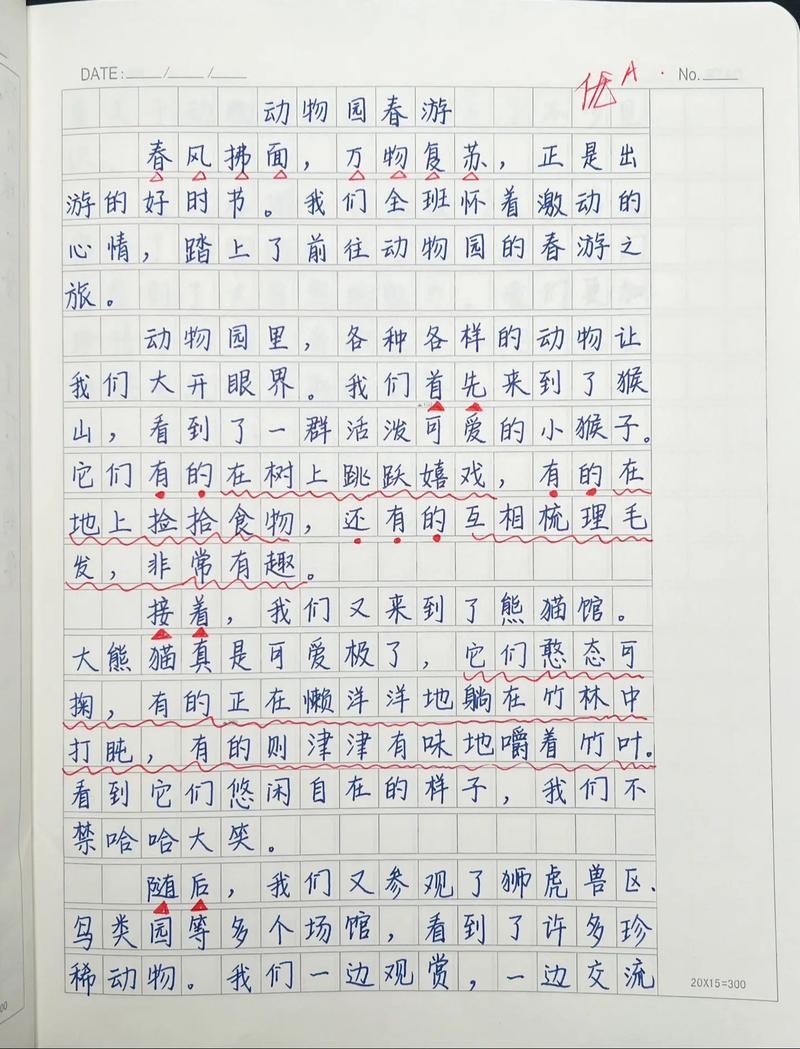 DATE: / /
优A
No.
动物园春游
春风拂面，万物复苏，正是出
游的好时节。我们全班怀着激动的
心情，踏上了前往动物园的春游之
旅。
动物园里，各种各样的动物让
我们大开眼界。我们首先来到了猴
山，看到了一群活泼可爱的小猴子。
它们有的在树上跳跃嬉戏，有的在
地上捡拾食物，还有的互相梳理毛
发，非常有趣。
接着，我们又来到了熊猫馆。
大熊猫真是可爱极了，它们憨态可
掬，有的正在懒洋洋地躺在竹林中
打盹，有的则津津有味地嚼着竹叶。
看到它们悠闲自在的样子，我们不
禁哈哈大笑。
随后，我们又参观了狮虎兽区、
鸟类园等多个场馆，看到了许多珍
稀动物。我们一边观赏，一边交流
20X15=300